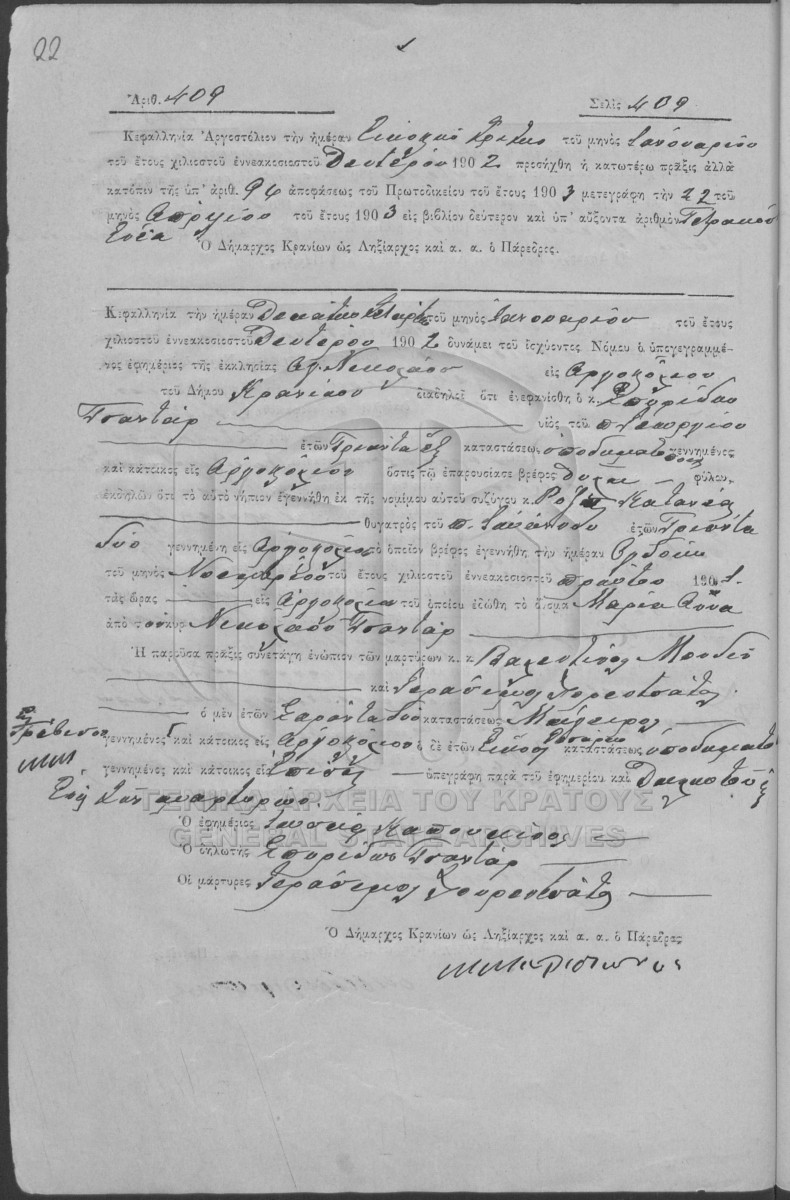 22
Ἀριθ. 409 Σελὶς 409
Κεφαλληνία Ἀργοστόλιον τὴν ἡμέραν Εἰκοστὴν τρίτην τοῦ μηνὸς Ἰανουαρίου
τοῦ ἔτους χιλιοστοῦ ἐννεακοσιοστοῦ Δευτέρου 1902 προσήχθη ἡ κατωτέρω πρᾶξις ἀλλὰ
κατόπιν τῆς ὑπ' ἀριθ. 94 ἀποφάσεως τοῦ Πρωτοδικείου τοῦ ἔτους 1903 μετεγράφη τὴν 22 τοῦ
μηνὸς Ἀπριλίου τοῦ ἔτους 1903 εἰς βιβλίον δεύτερον καὶ ὑπ' αὔξοντα ἀριθμὸν Τετρακόσ
Ἐνέα
Ὁ Δήμαρχος Κρανίων ὡς Ληξίαρχος καὶ α. α. ὁ Πάρεδρος.
Κεφαλληνία τὴν ἡμέραν Δεκάτην τετάρτην τοῦ μηνὸς Ἰανουαρίου τοῦ ἔτους
χιλιοστοῦ ἐννεακοσιοστοῦ Δευτέρου 1902 δυνάμει τοῦ ἰσχύοντος Νόμου ὁ ὑπογεγραμμέ-
νος ἐφημέριος τῆς ἐκκλησίας Ἁγ. Νικολάου εἰς Ἀργοστόλιον
τοῦ Δήμου Κρανίων διαδηλοῖ ὅτι ἐνεφανίσθη ὁ κ. Σπυρίδων
Τσαντάρ υἱὸς τοῦ π. Γεωργίου
ἐτῶν Τριάντα ἕξ καταστάσεως ὑποδηματοποιὸς γεννημένος
καὶ κάτοικος εἰς Ἀργοστόλιον ὅστις τῷ ἐπαρουσίασε βρέφος θῆλυ φύλου,
ἐκδηλῶν ὅτι τὸ αὐτὸ νήπιον ἐγεννήθη ἐκ τῆς νομίμου αὐτοῦ συζύγου κ. Ρόζα Κατανέα
θυγατρὸς τοῦ π. Ἰωάννου ἐτῶν Τριάντα
δύο γεννημένη εἰς Ἀργοστόλιον τὸ ὁποῖον βρέφος ἐγεννήθη τὴν ἡμέραν Ὀγδόην
τοῦ μηνὸς Νοεμβρίου τοῦ ἔτους χιλιοστοῦ ἐννεακοσιοστοῦ πρώτου 1901.
τὰς ὥρας εἰς Ἀργοστόλιον τοῦ ὁποίου ἐδόθη τὸ ὄνομα Μαρία Ἄννα
ἀπὸ τὸν κὺρ Νικολάου Τσαντάρ
Ἡ παροῦσα πρᾶξις συνετάγη ἐνώπιον τῶν μαρτύρων κ. κ. Βαλεντῖνος
καὶ Γεράσιμος
ὁ μὲν ἐτῶν Σαράντα δύο καταστάσεως Μάγειρος
γεννημένος καὶ κάτοικος εἰς Ἀργοστόλιον ὁ δὲ ἐτῶν Εἴκοσι τεσσάρων καταστάσεως ὑποδηματο
γεννημένος καὶ κάτοικος εἰς ὑπεγράφη παρὰ τοῦ ἐφημερίου καὶ
ΓΕΝΙΚΑ ΑΡΧΕΙΑ ΤΟΥ ΚΡΑΤΟΥΣ
GENERAL STATE ARCHIVES
Ὁ ἐφημέριος
Ὁ δηλωτής Σπυρίδων Τσαντάρ
Οἱ μάρτυρες Γεράσιμος
Ὁ Δήμαρχος Κρανίων ὡς Ληξίαρχος καὶ α. α. ὁ Πάρεδρος